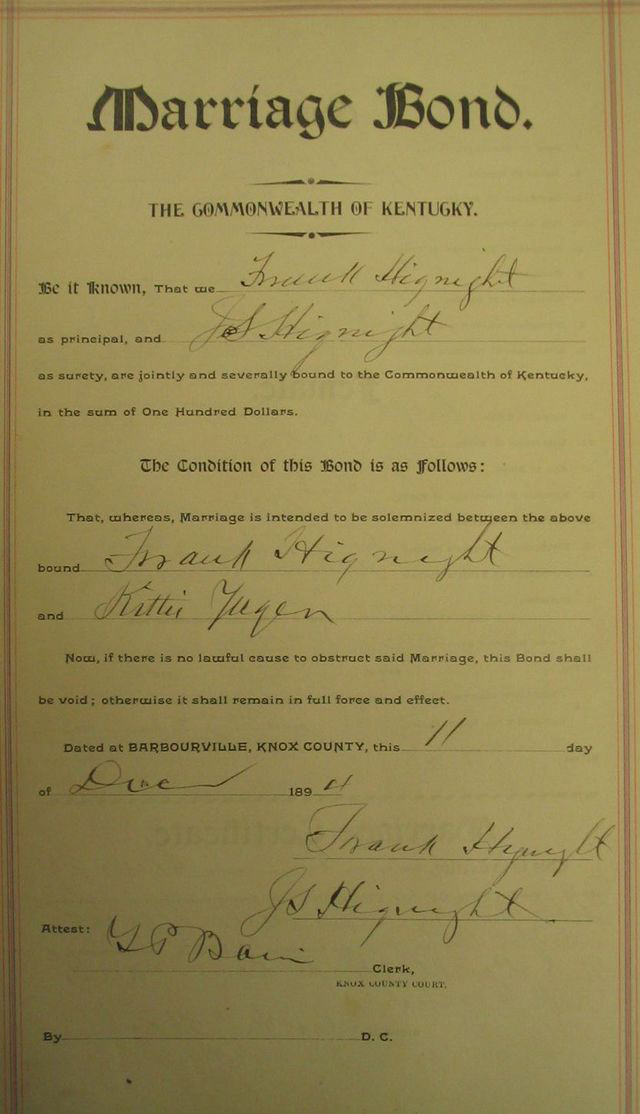 Marriage Bond.
THE COMMONWEALTH OF KENTUCKY.
Be it Known, That we Frank Hignight
as principal, and JS Hignight
as surety, are jointly and severally bound to the Commonwealth of Kentucky,
in the sum of One Hundred Dollars.
The Condition of this Bond is as Follows:
That, whereas, Marriage is intended to be solemnized between the above
bound Frank Hignight
and Kittie
Now, if there is no lawful cause to obstruct said Marriage, this Bond shall
be void; otherwise it shall remain in full force and effect.
Dated at BARBOURVILLE, KNOX COUNTY, this 11 day
of Dec 1894
Frank Hignight
JS Hignight
Attest:
Clerk,
KNOX COUNTY COURT.
By D. C.